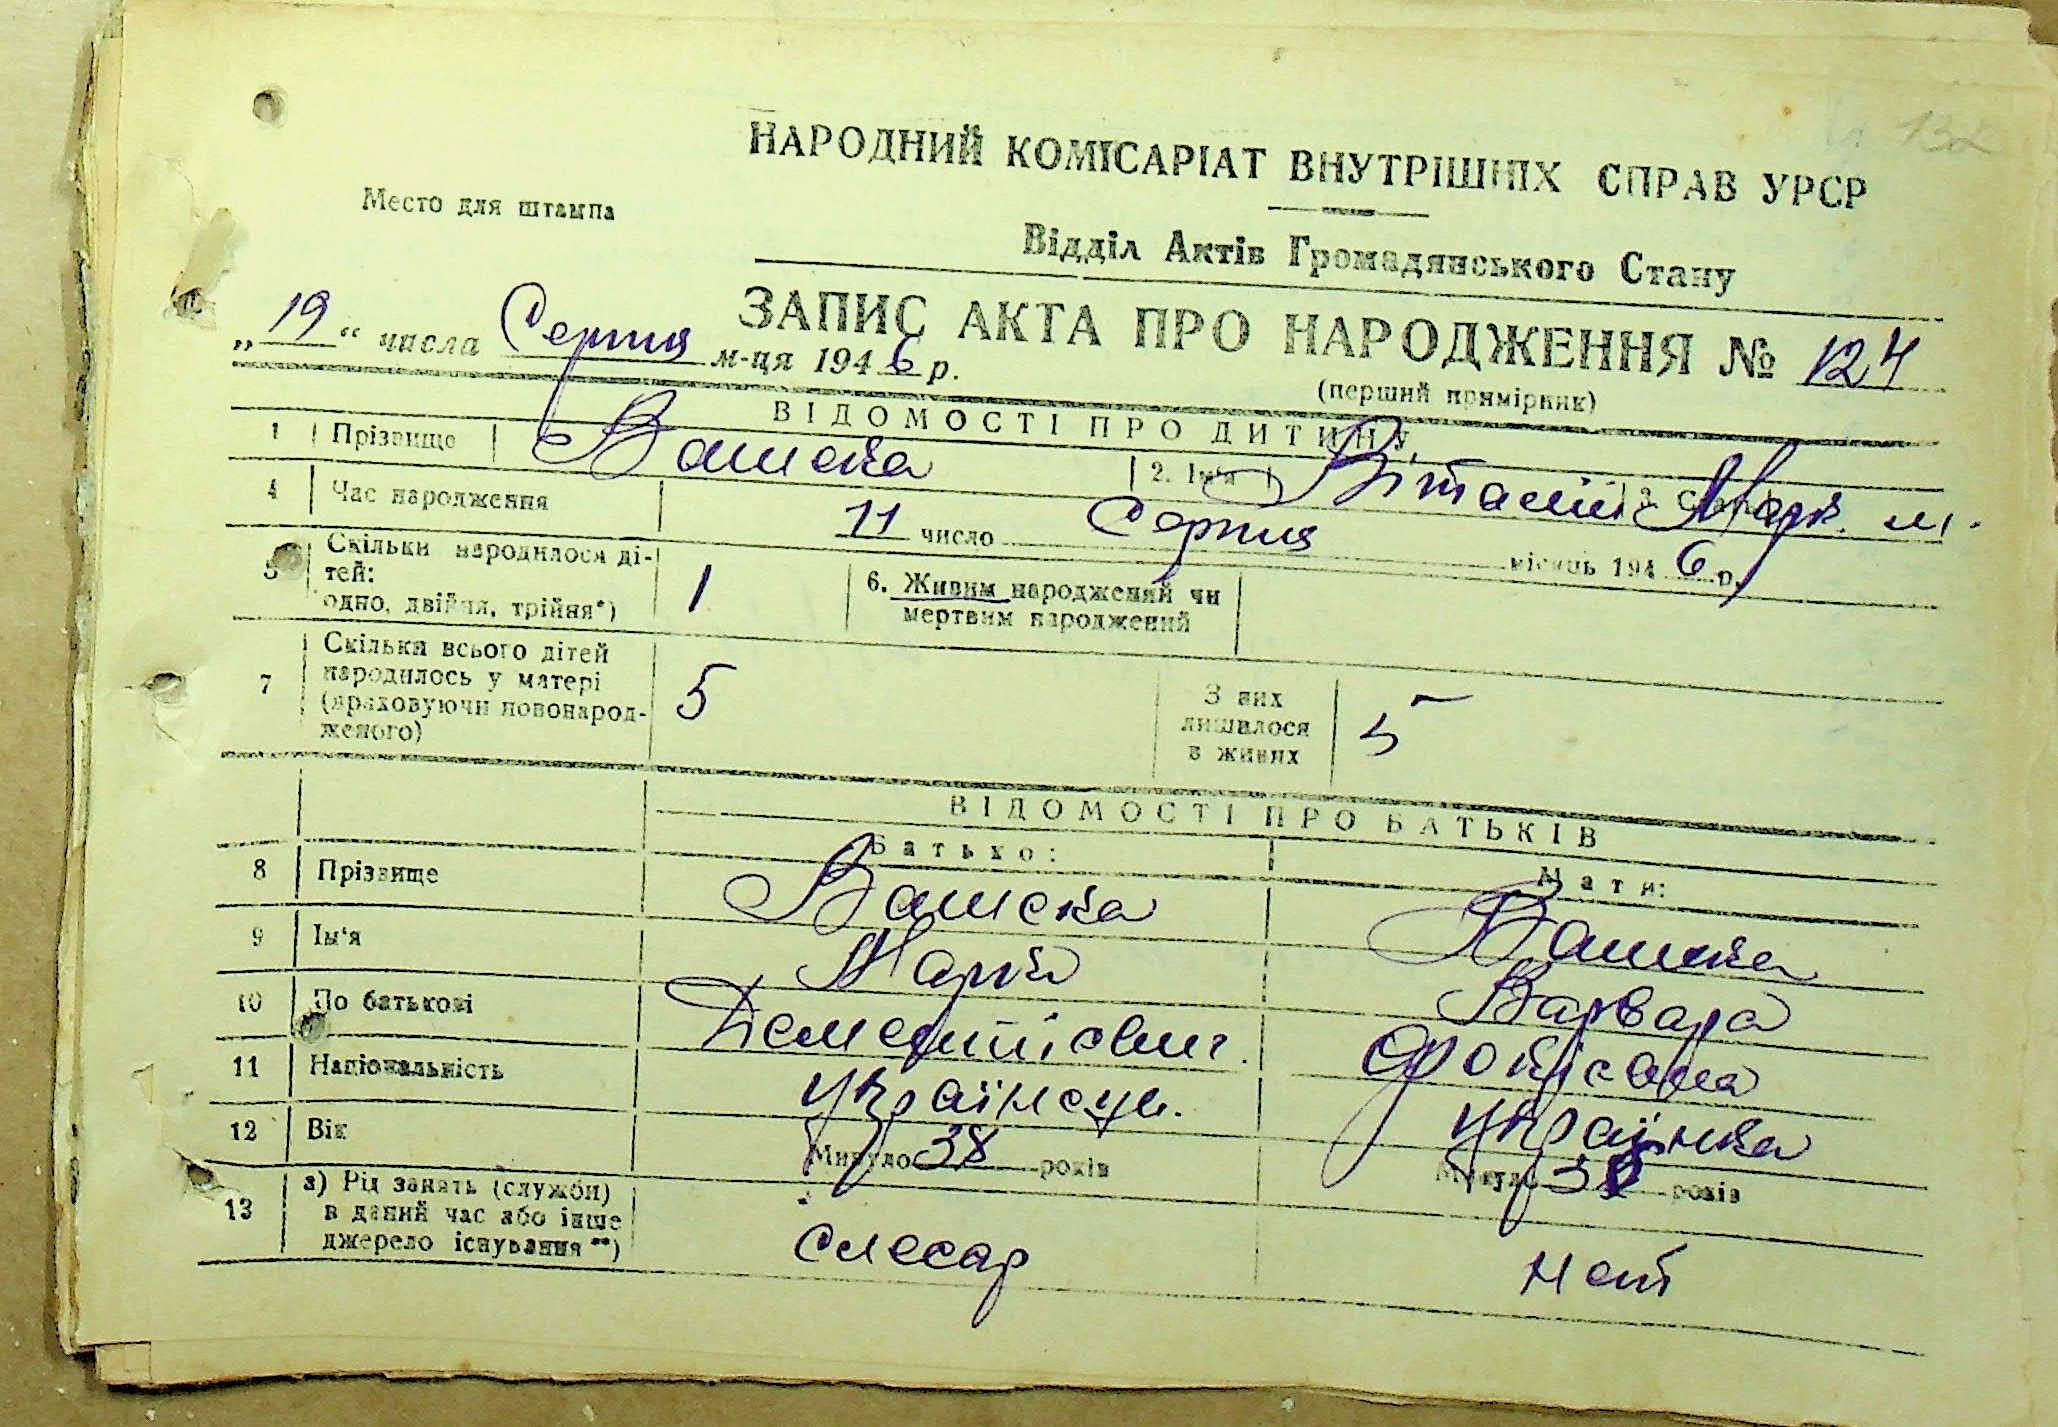 132
НАРОДНИЙ КОМІСАРІАТ ВНУТРІШНІХ СПРАВ УРСР
Место для штампа
Відділ Актів Громадянського Стану
ЗАПИС АКТА ПРО НАРОДЖЕННЯ № 124
„19“ числа Серпня м-ця 1946 р.
(перший примірник)
ВІДОМОСТІ ПРО ДИТИНУ
1 Прізвище Вашека 2. Ім'я Віталій Марк. 3. Стать м.
4 Час народження 11 число Серпня місяць 1946 р.
5 Скільки народилося ді-
тей:
одно, двійня, трійня*) 1
6. Живим народжений чи
мертвим народжений
7 Скільки всього дітей
народилось у матері
(враховуючи новонарод-
женого) 5
З них
лишилося
в живих 5
ВІДОМОСТІ ПРО БАТЬКІВ
Батько: Мати:
8 Прізвище Вашека Вашека
9 Ім'я Марк Варвара
10 По батькові Дементієвич.
11 Національність українець. українка
12 Вік Минуло 38 років Минуло років
13 а) Рід занять (служби)
в даний час або інше
джерело існування**) слесар нет